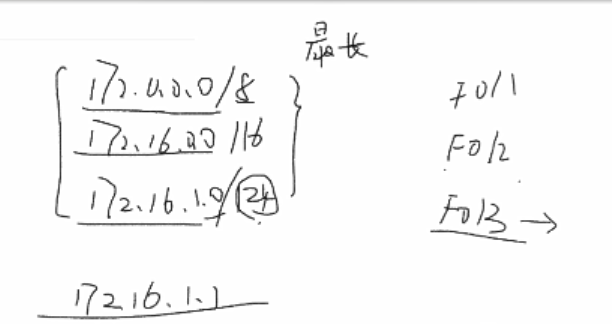 最长
172.0.0.0/8 F0/1
172.16.0.0/16 F0/2
172.16.1.0/24 F0/3 →
172.16.1.1